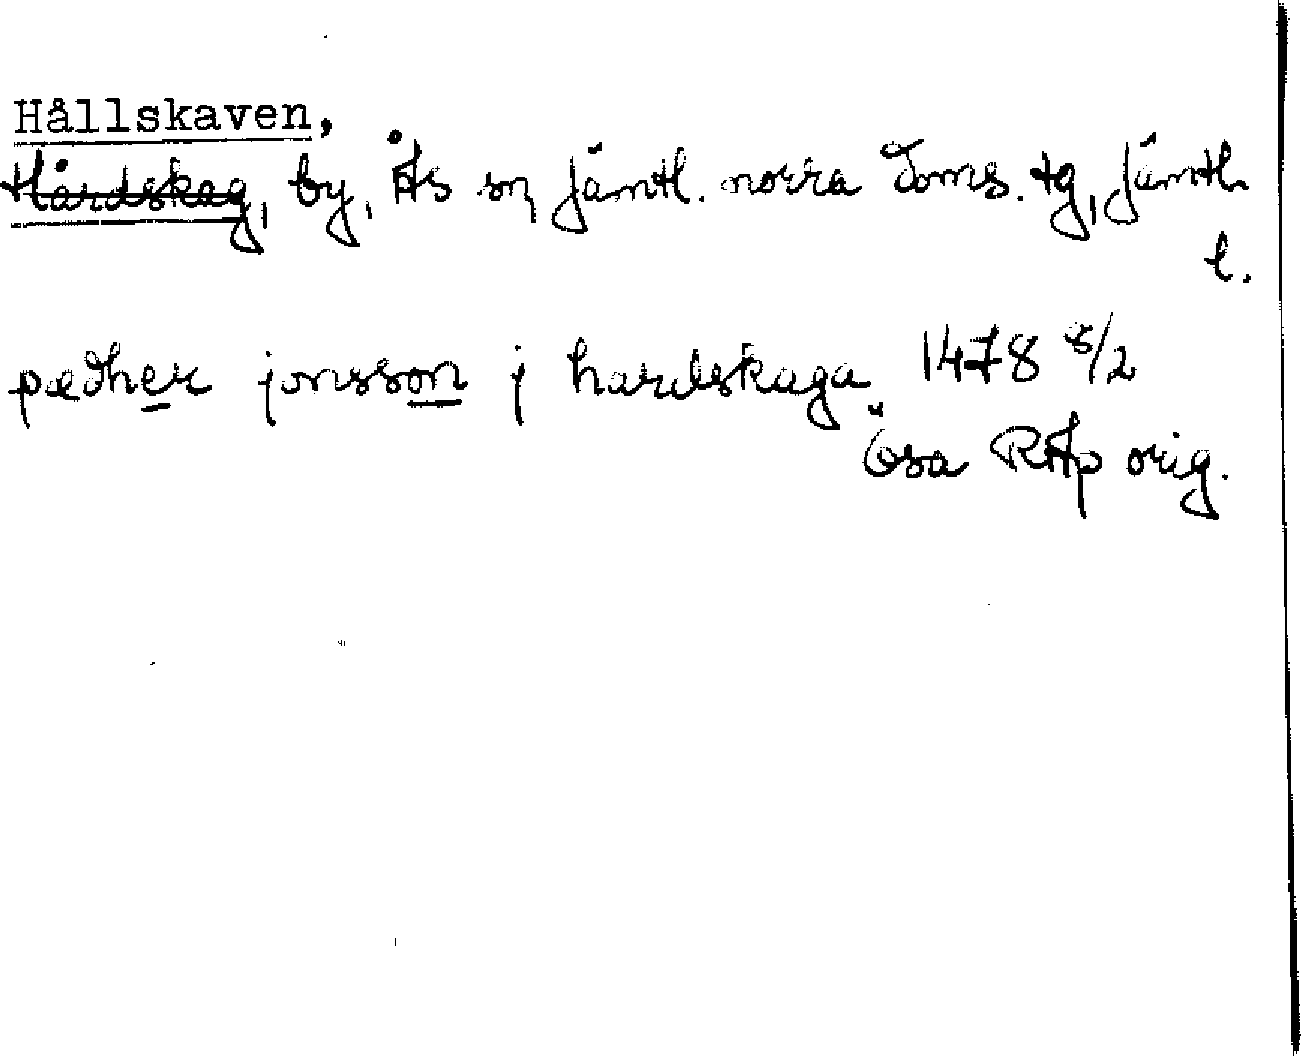 Hållskaven,
Hårdskag, by, Ås sn Jämtl. norra Doms. tg, Jämtl.
l.
pædher jonsson j hardskaga 1478 5/2
Ösa RAp orig.